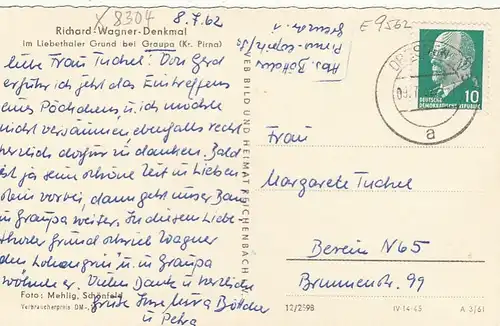 X 8304
8.7.62
E 9562
Richard-Wagner-Denkmal
im Liebethaler Grund bei Graupa (Kr. Pirna)
Liebe Frau Tuchel! Von Gerd
erfuhr ich jetzt das Eintreffen
eines Päckchens u. ich möchte
nicht versäumen ebenfalls recht
herzlich dafür zu danken. Bald
ist ja seine schöne Zeit in Lieben
vorbei, dann geht unser Bau
in Graupa weiter. In diesem Liebe-
thaler Grund schrieb Wagner
den Lohengrin u. in Graupa
wohnte er. Vielen Dank u. herzliche
Grüße Ihre Böttcher
u. Petra
Foto: Mehlig, Schönfeld
Verbraucherpreis DM
VEB BILD UND HEIMAT REICHENBACH
Abs. Böttcher
Pirna-Copitz
DRESDEN
a
10
DEUTSCHE
DEMOKRATISCHE REPUBLIK
Frau
Margarete Tuchel
Berlin N 65
Brunnenstr. 99
12/2898
IV-14-45
A 3/61